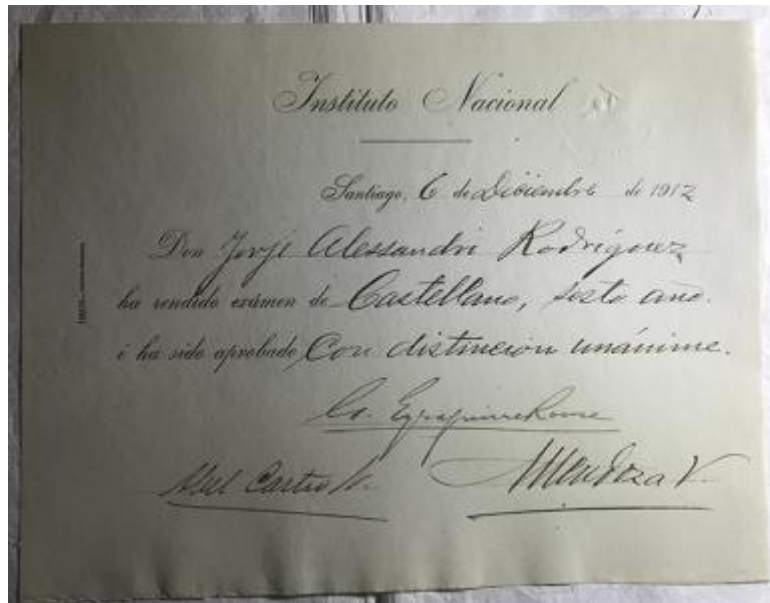 Instituto Nacional
Santiago, 6 de Diciembre de 1912
Don Jorje Alessandri Rodríguez
ha rendido exámen de Castellano, sesto año.
i ha sido aprobado Con distincion unánime.
Abel Castro
Mendoza V.